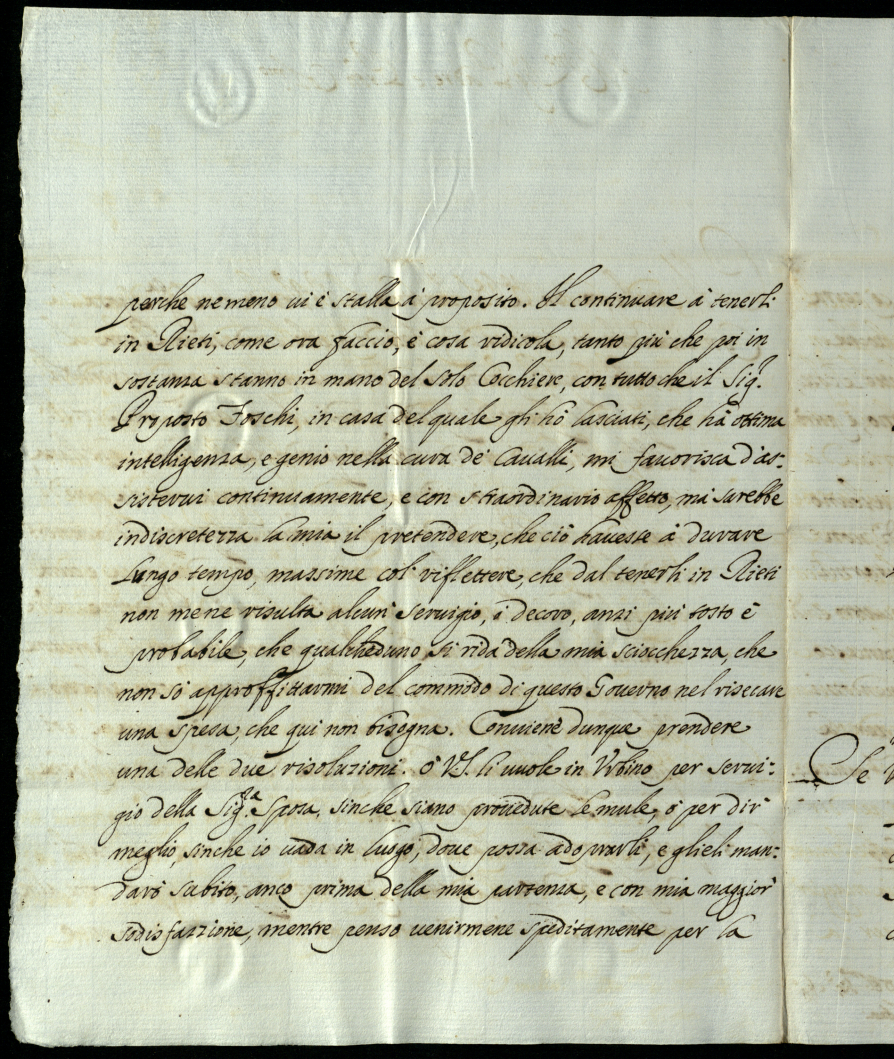 perche ne meno ui è stalla à proposito. Il continuare à tenerli
in Rieti, come ora faccio, è cosa ridicola, tanto più che poi in
sostanza stanno in mano del solo Cocchiere, con tutto che il Sig.r
Proposto Foschi, in casa del quale gli hò lasciati, che hà ottima
intelligenza, e genio nella cura de' Caualli, mi fauorisca d'as:
sisterui continuamente, e con straordinario affetto, mà sarebbe
indiscretezza la mia il pretendere, che ciò hauesse à durare
Lungo tempo, massime col riflettere, che dal tenerli in Rieti
non me ne risulta alcun seruigio, ò decoro, anzi più tosto è
probabile, che qualcheduno si rida della mia sciocchezza, che
non sò approffittarmi del commodo di questo Gouerno nel risecare
una spesa, che qui non bisogna. Conuiene dunque prendere
una delle due risoluzioni. ò V.S. li uuole in Vrbino per serui:
gio della Sig.ra Sposa, sinche siano prouedute le mule, ò per dir
meglio, sinche io uada in luogo, doue possa adoprarli, e glieli man:
darò subito, anco prima della mia partenza, e con mia maggior
sodisfazzione, mentre penso uenirmene speditamente per la
Se